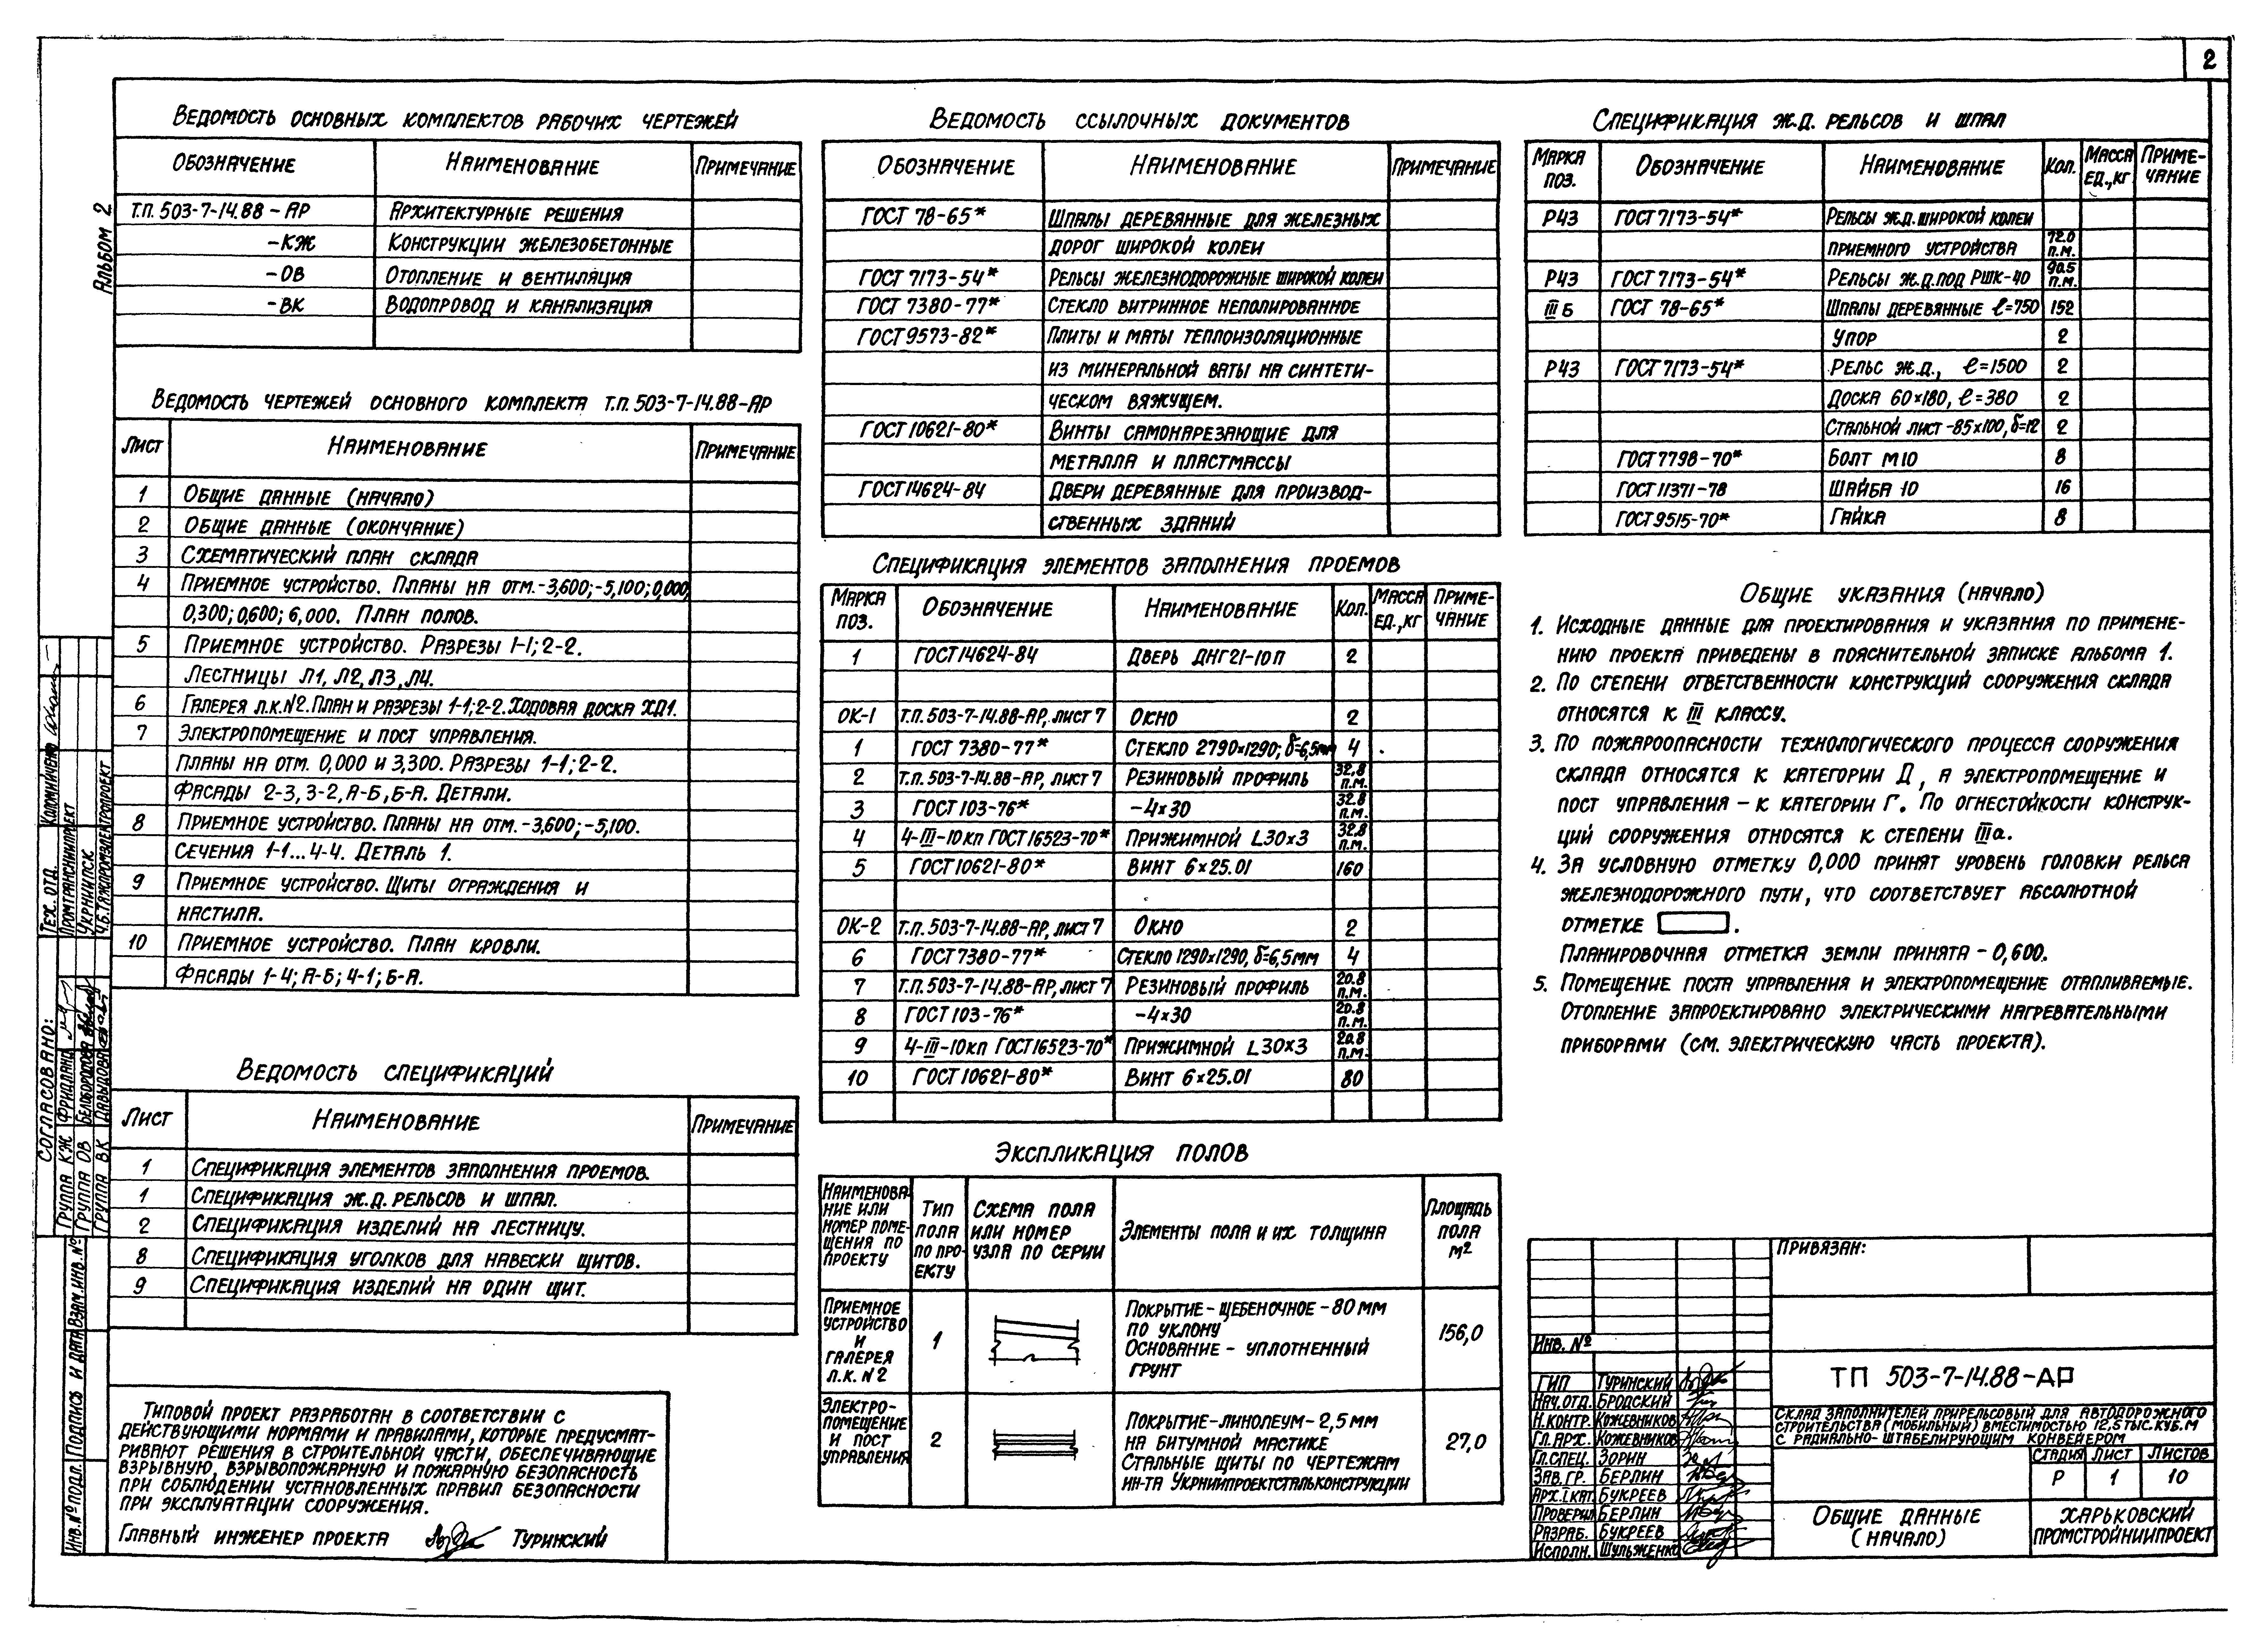 2
Альбом 2
Ведомость основных комплектов рабочих чертежей
Обозначение Наименование Примечание
Т.П. 503-7-14.88-АР Архитектурные решения
-КЖ Конструкции железобетонные
-ОВ Отопление и вентиляция
-ВК Водопровод и канализация
Ведомость чертежей основного комплекта Т.П. 503-7-14.88-АР
Лист Наименование Примечание
1 Общие данные (начало)
2 Общие данные (окончание)
3 Схематический план склада
4 Приемное устройство. Планы на отм. -3,600; -5,100; 0,000;
0,300; 0,600; 6,000. План полов.
5 Приемное устройство. Разрезы 1-1; 2-2.
Лестницы Л1, Л2, Л3, Л4.
6 Галерея л.к. №2. План и разрезы 1-1; 2-2. Ходовая доска ХД1.
7 Электропомещение и пост управления.
Планы на отм. 0,000 и 3,300. Разрезы 1-1; 2-2.
Фасады 2-3, 3-2, А-Б, Б-А. Детали.
8 Приемное устройство. Планы на отм. -3,600; -5,100.
Сечения 1-1...4-4. Деталь 1.
9 Приемное устройство. Щиты ограждения и
настила.
10 Приемное устройство. План кровли.
Фасады 1-4; А-Б; 4-1; Б-А.
Ведомость спецификаций
Лист Наименование Примечание
1 Спецификация элементов заполнения проемов.
1 Спецификация ж.д. рельсов и шпал.
2 Спецификация изделий на лестницу.
8 Спецификация уголков для навески щитов.
9 Спецификация изделий на один щит.
Типовой проект разработан в соответствии с
действующими нормами и правилами, которые предусмат-
ривают решения в строительной части, обеспечивающие
взрывную, взрывопожарную и пожарную безопасность
при соблюдении установленных правил безопасности
при эксплуатации сооружения.
Главный инженер проекта Туринский
Ведомость ссылочных документов
Обозначение Наименование Примечание
ГОСТ 78-65* Шпалы деревянные для железных
дорог широкой колеи
ГОСТ 7173-54* Рельсы железнодорожные широкой колеи
ГОСТ 7380-77* Стекло витринное неполированное
ГОСТ 9573-82* Плиты и маты теплоизоляционные
из минеральной ваты на синтети-
ческом вяжущем.
ГОСТ 10621-80* Винты самонарезающие для
металла и пластмассы
ГОСТ 14624-84 Двери деревянные для производ-
ственных зданий
Спецификация элементов заполнения проемов
Марка поз. Обозначение Наименование Кол. Масса ед., кг Приме-чание
1 ГОСТ 14624-84 Дверь ДНГ21-10П 2
ОК-1 Т.П. 503-7-14.88-АР, лист 7 Окно 2
1 ГОСТ 7380-77* Стекло 2790×1290; δ=6,5мм 4
2 Т.П. 503-7-14.88-АР, лист 7 Резиновый профиль 32,8 п.м.
3 ГОСТ 103-76* -4×30 32.8 п.м.
4 4-III-10кп ГОСТ 16523-70* Прижимной L30×3 32.8 п.м.
5 ГОСТ 10621-80* Винт 6×25.01 160
ОК-2 Т.П. 503-7-14.88-АР, лист 7 Окно 2
6 ГОСТ 7380-77* Стекло 1290×1290, δ=6,5мм 4
7 Т.П. 503-7-14.88-АР, лист 7 Резиновый профиль 20.8 п.м.
8 ГОСТ 103-76* -4×30 20.8 п.м.
9 4-III-10кп ГОСТ 16523-70* Прижимной L30×3 20.8 п.м.
10 ГОСТ 10621-80* Винт 6×25.01 80
Экспликация полов
Наименова-ние или номер поме-щения по проекту Тип пола по про-екту Схема пола или номер узла по серии Элементы пола и их толщина Площадь пола м²
Приемное устройство и галерея л.к. №2 1 156,0
Покрытие - щебеночное - 80 мм
по уклону
Основание - уплотненный
грунт
Электро-помещение и пост управления 2 27,0
Покрытие-линолеум-2,5 мм
на битумной мастике
Стальные щиты по чертежам
ин-та Укрниипроектстальконструкции
Спецификация ж.д. рельсов и шпал
Марка поз. Обозначение Наименование Кол. Масса ед., кг Приме-чание
Р43 ГОСТ 7173-54* Рельсы ж.д. широкой колеи
приемного устройства 72.0 п.м.
Р43 ГОСТ 7173-54* Рельсы ж.д. под РШК-40 90.5 п.м.
III Б ГОСТ 78-65* Шпалы деревянные ℓ=750 152
Упор 2
Р43 ГОСТ 7173-54* Рельс ж.д., ℓ=1500 2
Доска 60×180, ℓ=380 2
Стальной лист -85×100, δ=12 2
ГОСТ 7798-70* Болт М10 8
ГОСТ 11371-78 Шайба 10 16
ГОСТ 9515-70* Гайка 8
Общие указания (начало)
1. Исходные данные для проектирования и указания по примене-
нию проекта приведены в пояснительной записке альбома 1.
2. По степени ответственности конструкций сооружения склада
относятся к III классу.
3. По пожароопасности технологического процесса сооружения
склада относятся к категории Д, а электропомещение и
пост управления - к категории Г. По огнестойкости конструк-
ций сооружения относятся к степени IIIа.
4. За условную отметку 0,000 принят уровень головки рельса
железнодорожного пути, что соответствует абсолютной
отметке .
Планировочная отметка земли принята - 0,600.
5. Помещение поста управления и электропомещение отапливаемые.
Отопление запроектировано электрическими нагревательными
приборами (см. электрическую часть проекта).
Привязан:
Инв. №
ГИП Туринский
Нач. отд. Бродский
Н. контр. Кожевников
Гл. арх. Кожевников
Гл. спец. Зорин
Зав. гр. Берлин
Арх. I кат. Букреев
Проверил Берлин
Разраб. Букреев
Исполн. Шульженко
ТП 503-7-14.88-АР
Склад заполнителей прирельсовый для автодорожного
строительства (мобильный) вместимостью 12,5 тыс. куб. м
с радиально-штабелирующим конвейером
Стадия Лист Листов
Р 1 10
Общие данные
(начало)
Харьковский
Промстройниипроект
Согласовано:
Тех. отд.
Промтрансниипроект
Укрниипск
Ч.Б. Тяжпромэлектропроект
Группа КЖ Фридланд
Группа ОВ Белобородова
Группа ВК Давыдова
Взам. инв. №
Подпись и дата
Инв. № подл.